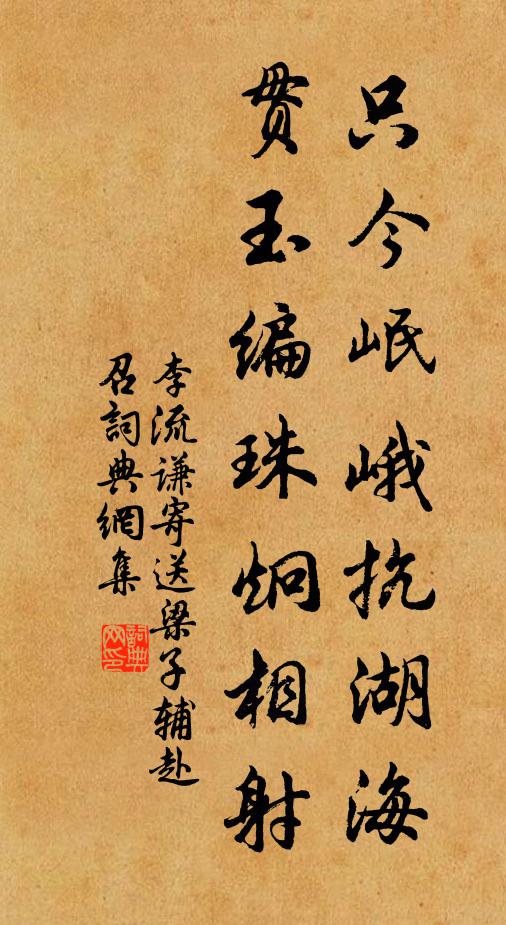 只今岷峨抗湖海
贯玉编珠炯相射
李流谦寄送梁子辅赴
召詞典網集
詞典
网印